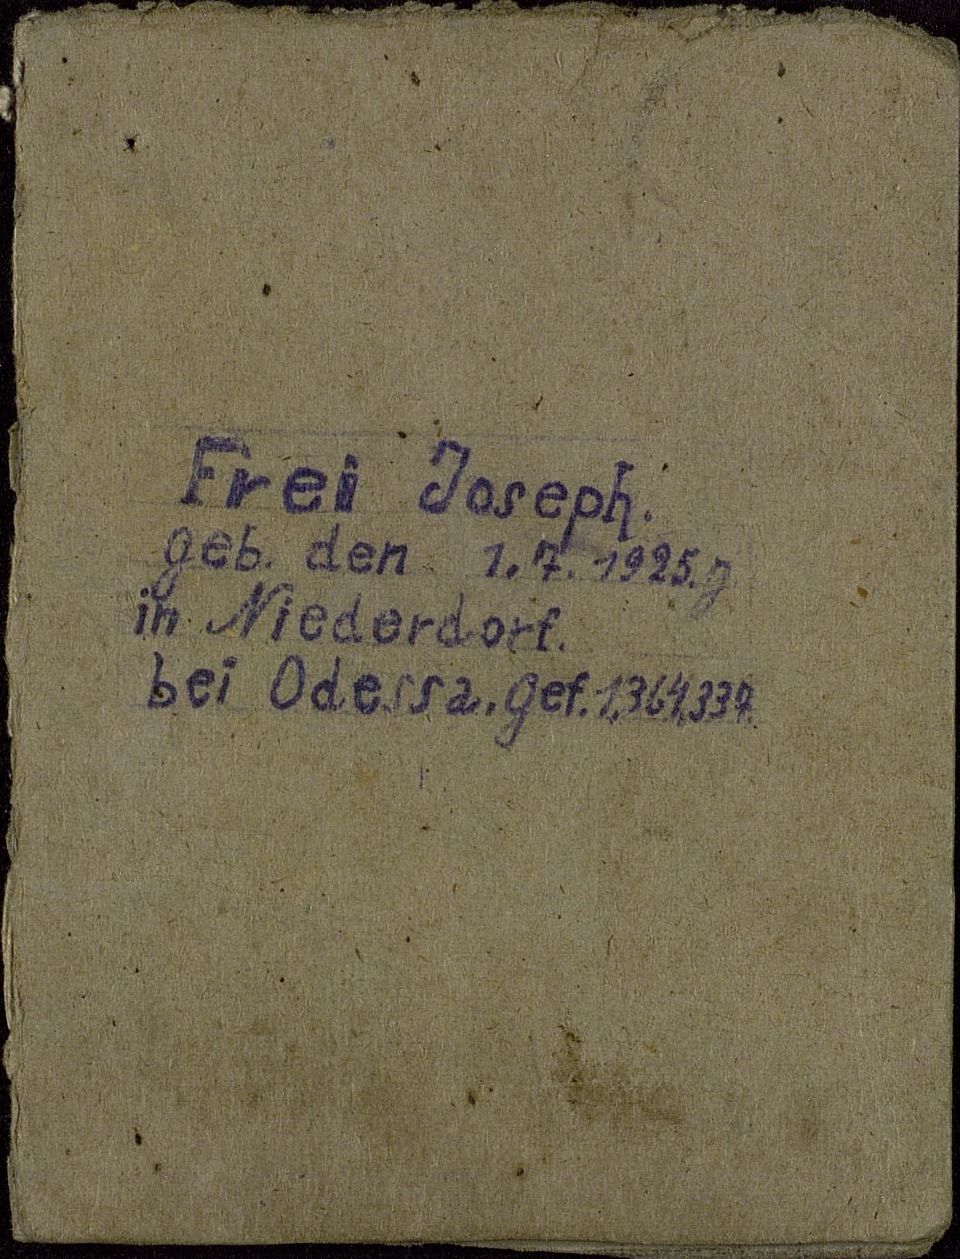 Frei Joseph.
geb. den 1.7.1925.J
in Niederdorf.
bei Odessa. gef. 1,364,337.